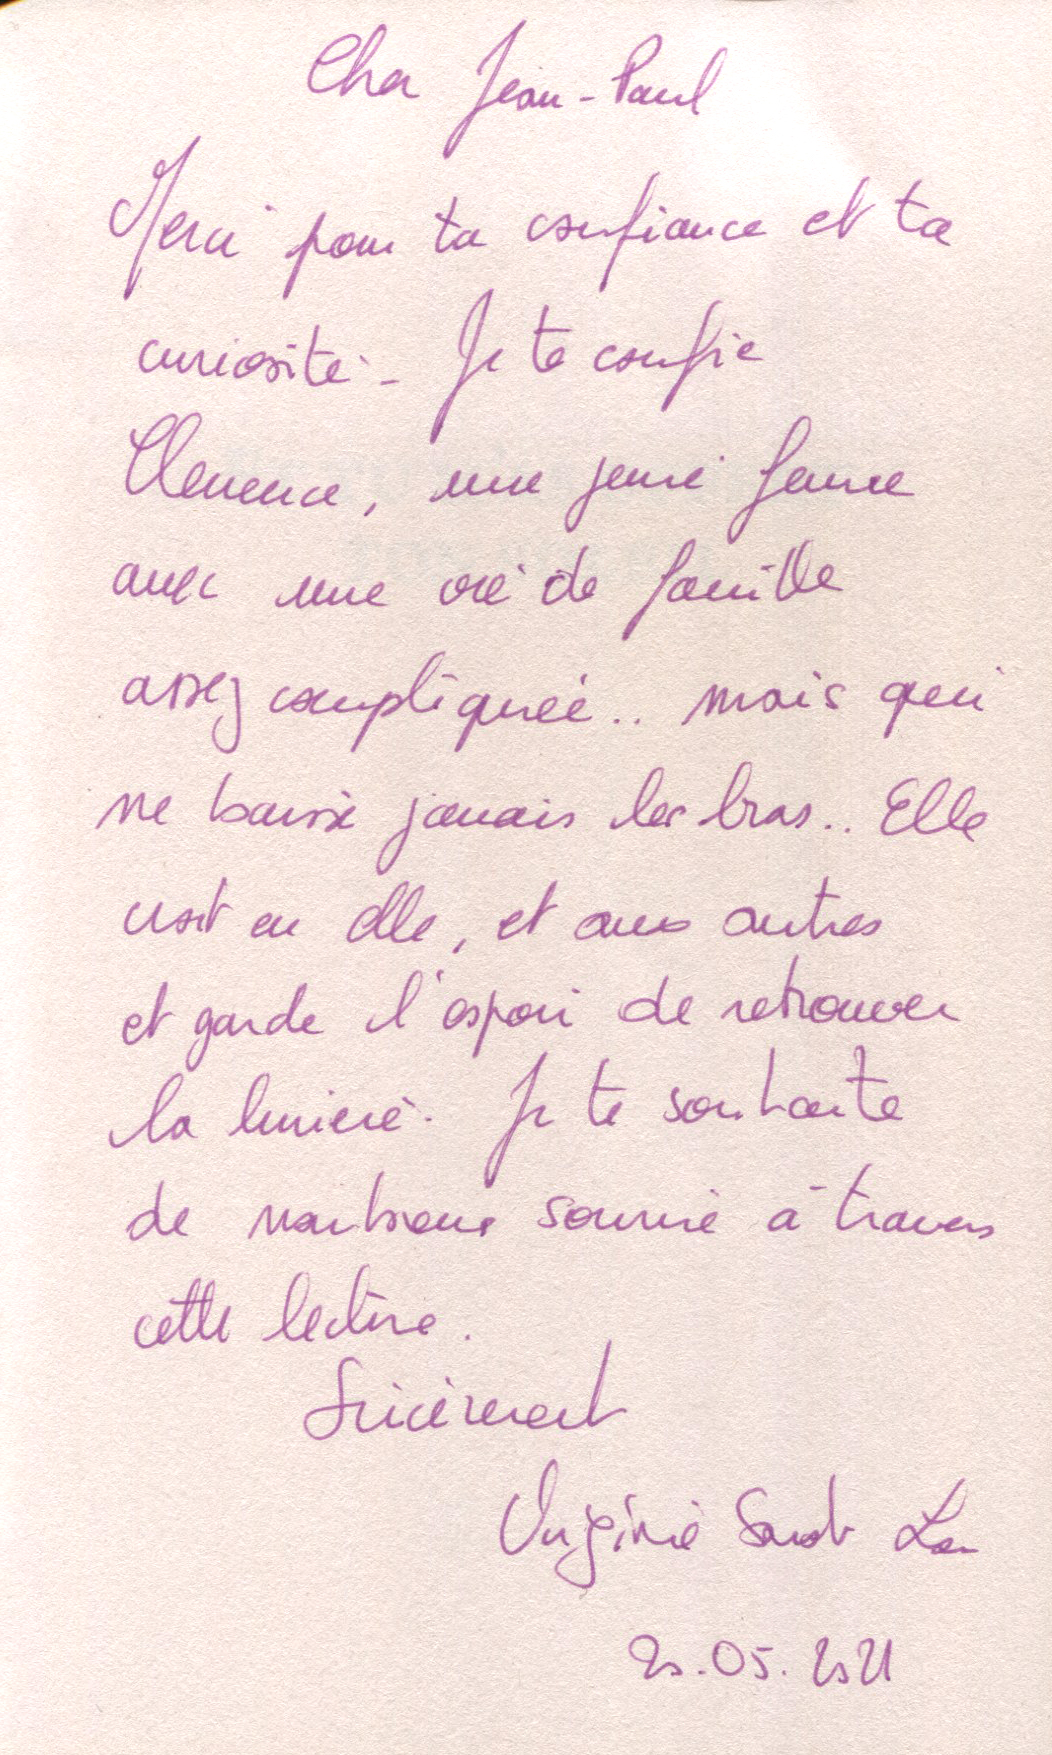 Cher Jean-Paul
Merci pour ta confiance et ta
curiosité. Je te confie
Clémence, une jeune femme
avec une vie de famille
assez compliquée.. mais qui
ne baisse jamais les bras.. Elle
croit en elle, et aux autres
et garde l'espoir de retrouver
la lumière. Je te souhaite
de nombreux sourire à travers
cette lecture.
Sincèrement
Virginie Sarah
.05.2021